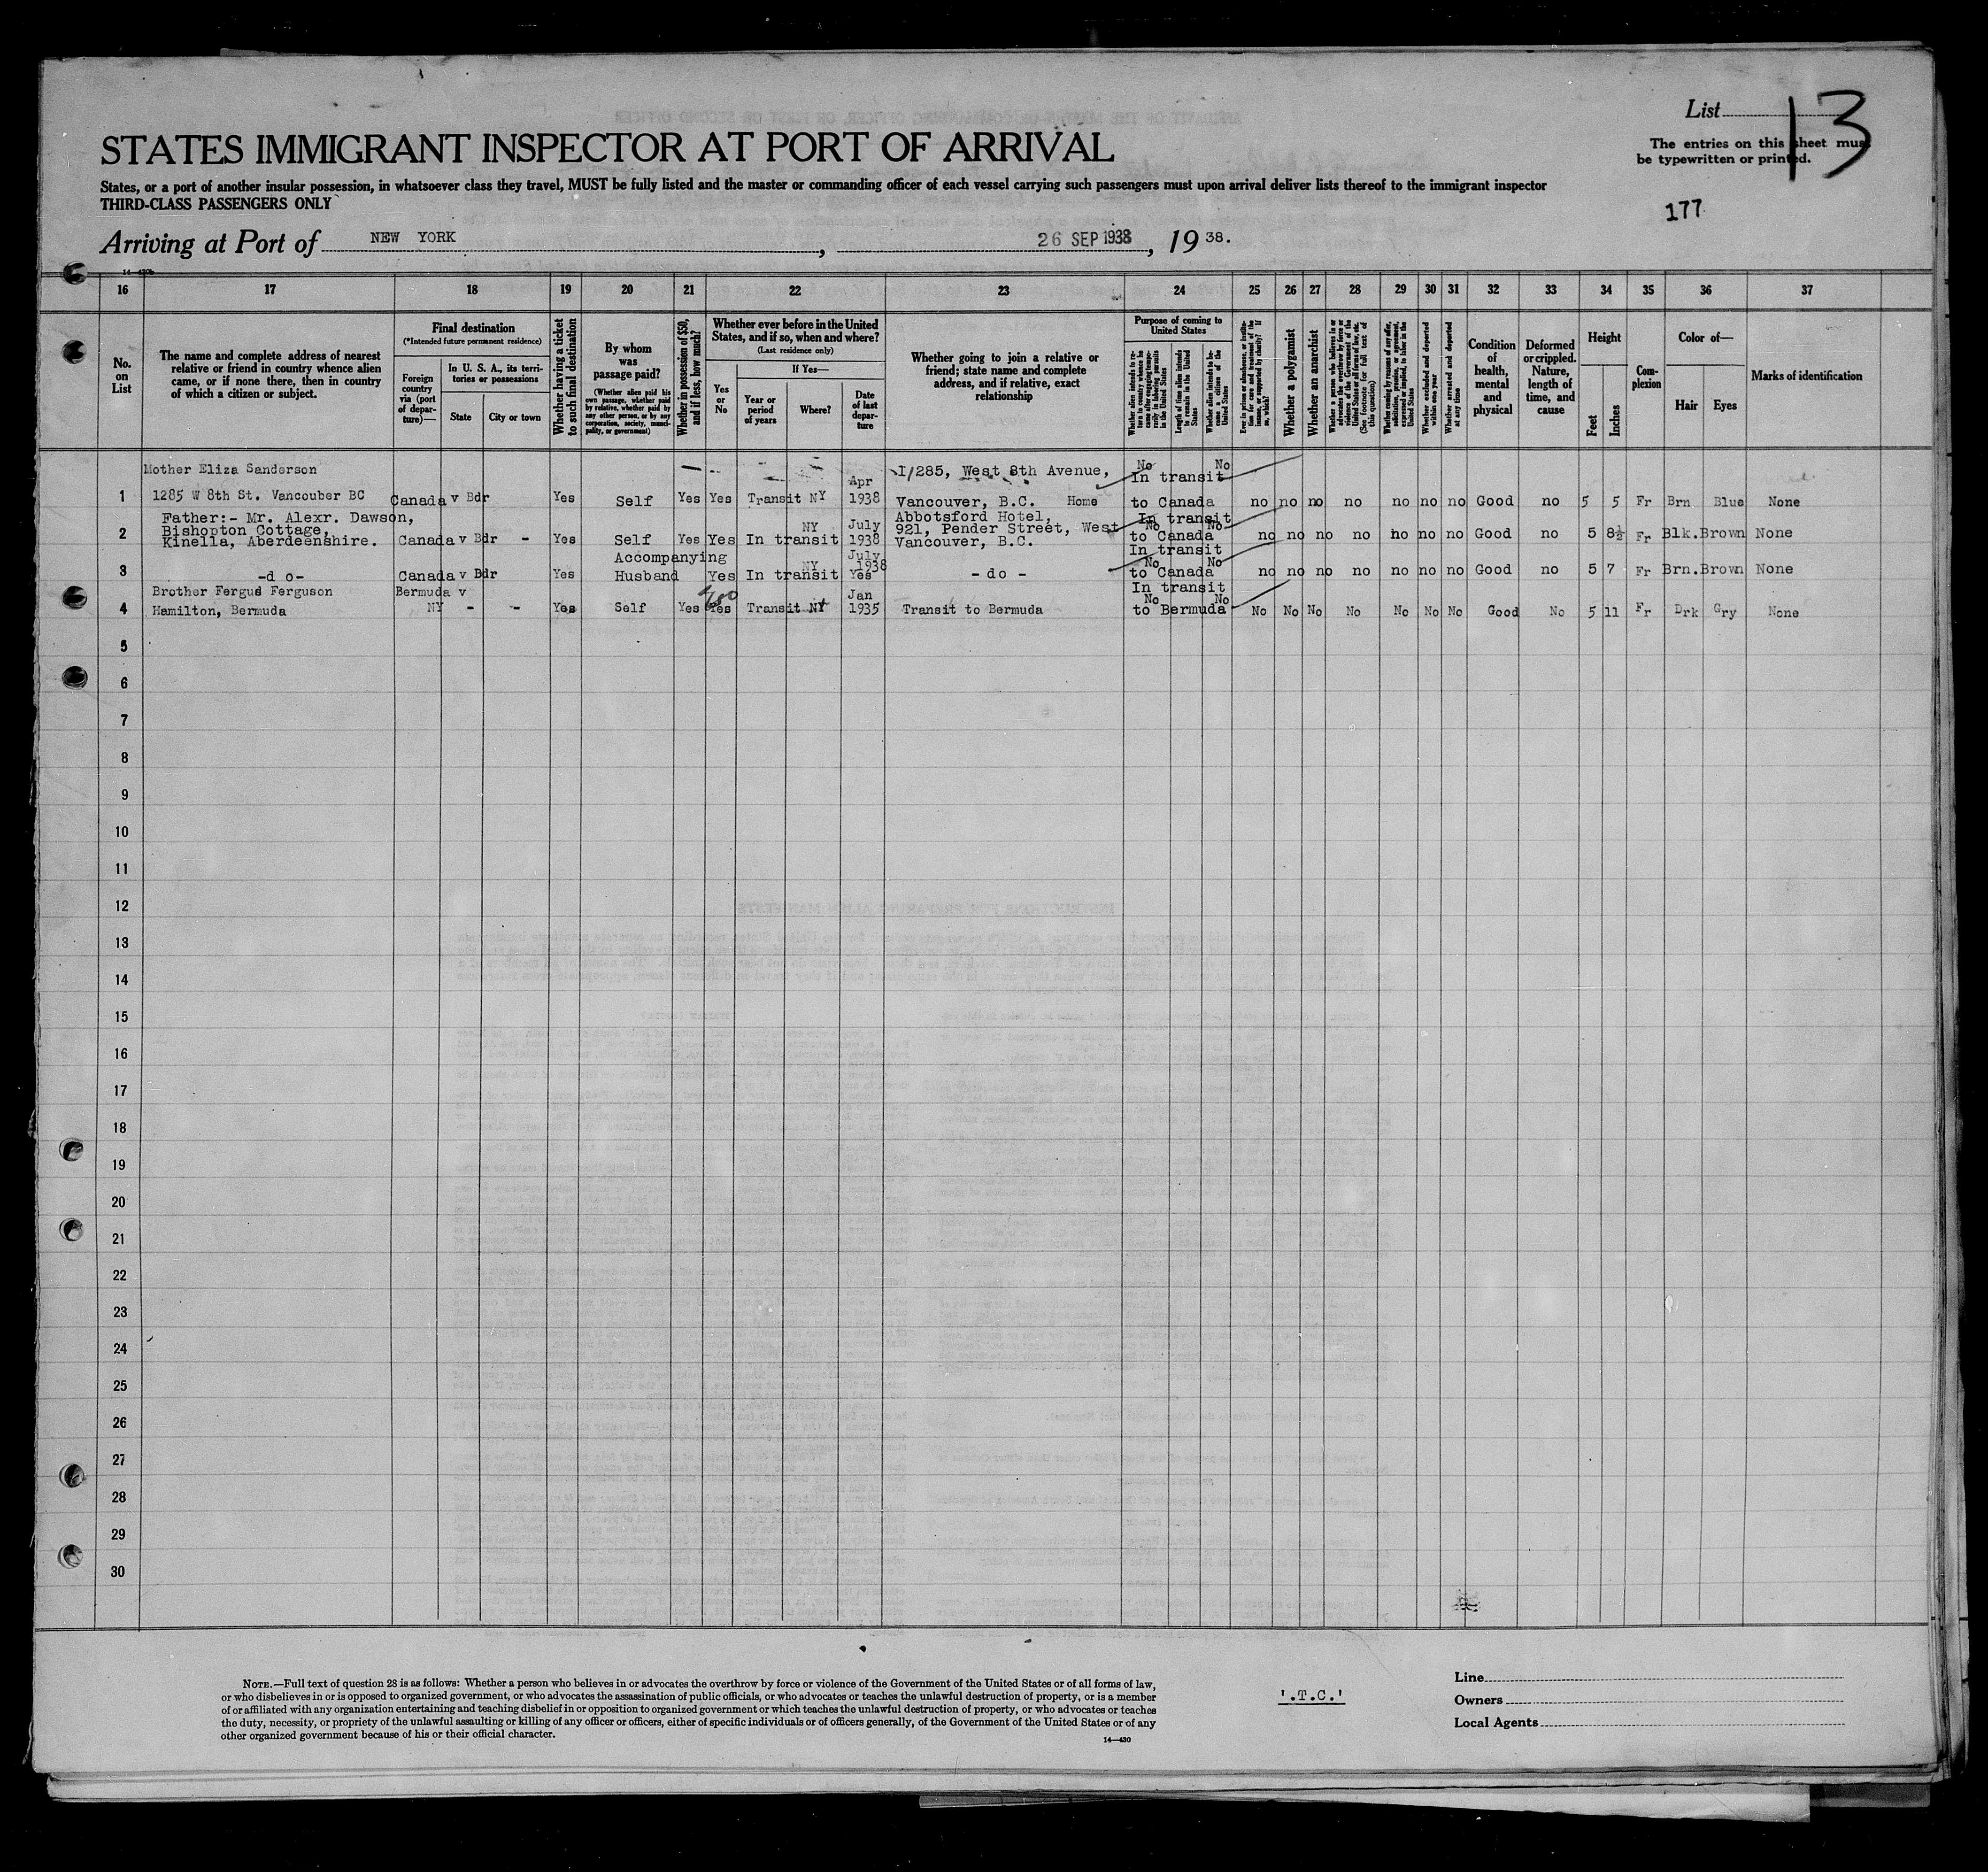 List 13
The entries on this sheet must
be typewritten or printed.
STATES IMMIGRANT INSPECTOR AT PORT OF ARRIVAL
States, or a port of another insular possession, in whatsoever class they travel, MUST be fully listed and the master or commanding officer of each vessel carrying such passengers must upon arrival deliver lists thereof to the immigrant inspector
THIRD-CLASS PASSENGERS ONLY
177
Arriving at Port of NEW YORK, 26 SEP 1938, 19 38.
16 17 18 19 20 21 22 23 24 25 26 27 28 29 30 31 32 33 34 35 36 37
No. on List
The name and complete address of nearest
relative or friend in country whence alien
came, or if none there, then in country
of which a citizen or subject.
Final destination
(*Intended future permanent residence)
Foreign
country
via (port
of depar-
ture)—
In U. S. A., its terri-
tories or possessions
State
City or town
Whether having a ticket
to such final destination
By whom
was
passage paid?
(Whether alien paid his
own passage, whether paid
by relative, whether paid by
any other person, or by any
corporation, society, munici-
pality, or government)
Whether in possession of $50,
and if less, how much?
Whether ever before in the United
States, and if so, when and where?
(Last residence only)
Yes
or
No
If Yes—
Year or
period
of years
Where?
Date
of last
depar-
ture
Whether going to join a relative or
friend; state name and complete
address, and if relative, exact
relationship
Purpose of coming to
United States
Whether alien intends to re-
turn to country whence he
came after engaging tempo-
rarily in laboring pursuits
in the United States
Length of time alien intends
to remain in the United
States
Whether alien intends to be-
come a citizen of the
United States
Ever in prison or almshouse, or institu-
tion for care and treatment of the
insane, or supported by charity? If
so, which?
Whether a polygamist
Whether an anarchist
Whether a person who believes in or
advocates the overthrow by force or
violence of the Government of the
United States or all forms of law, etc.
(See footnote for full text of
this question)
Whether coming by reason of any offer,
solicitation, promise, or agreement,
expressed or implied, to labor in the
United States
Whether excluded and deported
within one year
Whether arrested and deported
at any time
Condition
of
health,
mental
and
physical
Deformed
or crippled.
Nature,
length of
time, and
cause
Height
Feet
Inches
Com-
plexion
Color of—
Hair
Eyes
Marks of identification
Mother Eliza Sanderson Apr 1/285, West 8th Avenue, No No In transit
1 1285 W 8th St. Vancouber BC Canada v Bdr Yes Self Yes Yes Transit NY 1938 Vancouver, B.C. Home to Canada no no no no no no no Good no 5 5 Fr Brn Blue None
Father:- Mr. Alexr. Dawson, Abbotsford Hotel, In transit
2 Bishopton Cottage, NY July 921, Pender Street, West No No
Kinella, Aberdeenshire. Canada v Bdr - Yes Self Yes Yes In transit 1938 Vancouver, B.C. to Canada no no no no no no no Good no 5 8½ Fr Blk. Brown None
Accompanying July In transit
NY 1938 No No
3 -d o- Canada v Bdr Yes Husband Yes In transit Yes - do - to Canada no no no no no no no Good no 5 7 Fr Brn. Brown None
Brother Fergus Ferguson Bermuda v Jan In transit
No No
4 Hamilton, Bermuda NY - - Yes Self Yes Yes Transit NY 1935 Transit to Bermuda to Bermuda No No No No No No No Good No 5 11 Fr Drk Gry None
5
6
7
8
9
10
11
12
13
14
15
16
17
18
19
20
21
22
23
24
25
26
27
28
29
30
NOTE.—Full text of question 28 is as follows: Whether a person who believes in or advocates the overthrow by force or violence of the Government of the United States or of all forms of law,
or who disbelieves in or is opposed to organized government, or who advocates the assassination of public officials, or who advocates or teaches the unlawful destruction of property, or is a member
of or affiliated with any organization entertaining and teaching disbelief in or opposition to organized government or which teaches the unlawful destruction of property, or who advocates or teaches
the duty, necessity, or propriety of the unlawful assaulting or killing of any officer or officers, either of specific individuals or of officers generally, of the Government of the United States or of any
other organized government because of his or their official character.
14—430
'.T.C.'
Line
Owners
Local Agents